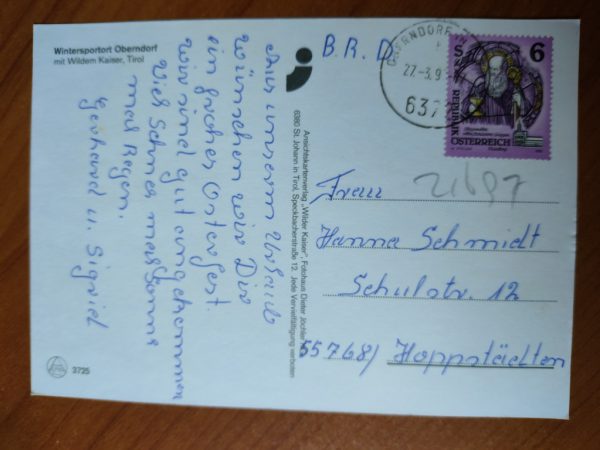 Wintersportort Oberndorf
mit Wildem Kaiser, Tirol
Aus unserm Urlaub
wünschen wir Dir
ein frohes Osterfest.
Wir sind gut angekommen
Viel Schnee mal Sonne
mal Regen.
Gerhard u. Sigrid
3725
Ansichtskartenverlag „Wilder Kaiser", Fotohaus Dieter Jöchler
6380 St. Johann in Tirol, Speckbacherstraße 12. Jede Vervielfältigung verboten
B. R. D.
OBERNDORF
27.-3.9
637
S 6
REPUBLIK
ÖSTERREICH
21697
Frau
Hanna Schmidt
Schulstr. 12
55768/ Hoppstädten